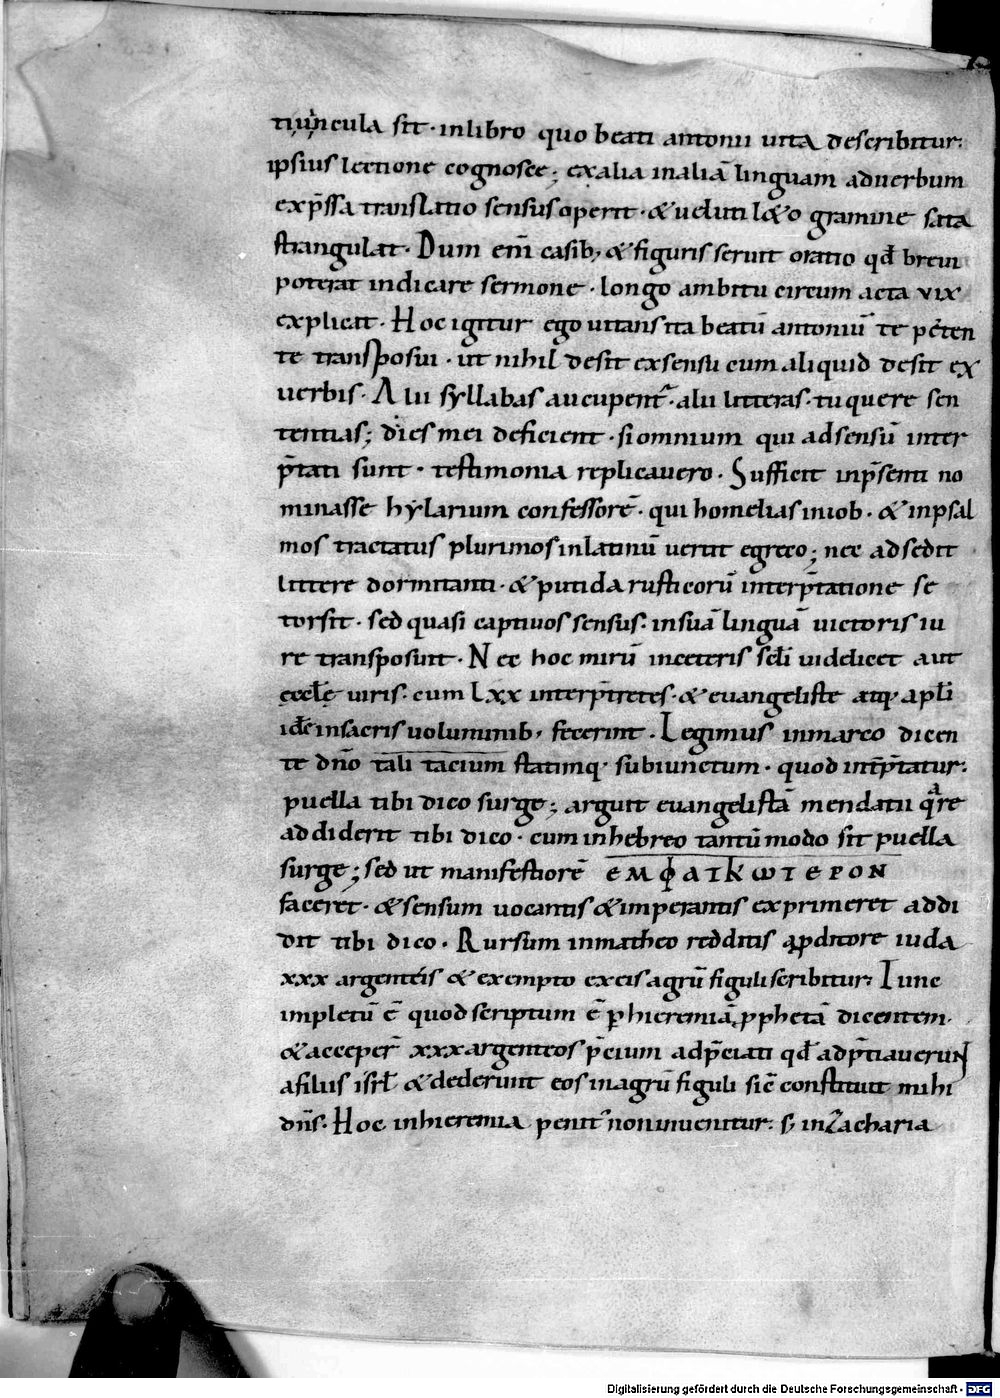 tiuncula sit · inlibro quo beati antonii uita describitur:
ipsius lectione cognosce; exalia inaliā linguam aduerbum
exp̄ssa translatio sensus operit · & ueluti l&o gramine sata
strangulat · Dum eni̅ casib; & figuris seruit oratio qđ breui
poterat indicare sermone · longo ambitu circum acta vix
explicat · Hoc igitur ego uitans ita beatū antoniū te peten
te transposui · ut nihil desit exsensu cum aliquid desit ex
uerbis · Alii syllabas aucupent̃ · alii litteras · tu quere sen
tentias; dies mei deficient · si omnium qui adsensū inter
p̄tati sunt · testimonia replicavero · Sufficit inp̄senti no
minasse hẏlarium confessorē · qui homelias iniob · & inpsal
mos tractatus plurimos inlatinū uertit egreco; nec adsedit
littere dormitanti · & putida rusticorū interp̄tatione se
torsit · sed quasi captiuos sensus · insuā linguā uictoris iu
re transposuit · Nec hoc mirū inceteris sc̄li uidelicet aut
ęccl̄ę uiris · cum Lxx interp̄tretes · & euangeliste atq; apl̄i
idē insacris uoluminib; fecerint · Legimus inmarco dicen
te dn̄o tali tacium statimq; subiunctum · quod int̄p̄tatur:
puella tibi dico surge; arguit euangelistā mendatii qͣre
addiderit tibi dico · cum inhebreo tantū modo sit puella
surge; sed ut manifestiorē ЄΜΦΑΤΚωΤЄΡΟΝ
faceret · & sensum uocantis & imperantis exprimeret addi
dit tibi dico · Rursum inmatheo redditis aꝓditore iuda
xxx argenteis & exempto exeis agrū figuli scribitur: Tunc
impletū ē quod scriptum ē ꝑ hieremiā ꝓphetā dicentem ·
& acceper̄ xxx argenteos p̄cium adp̄ciati qđ adp̄tiauerunt
afiliis isrł & dederunt eos inagrū figuli sic̄ constituit mihi
dn̄s · Hoc inhieremia penit᷒ non inuenitur: s; inzacharia
Digitalisierung gefördert durch die Deutsche Forschungsgemeinschaft - DFG